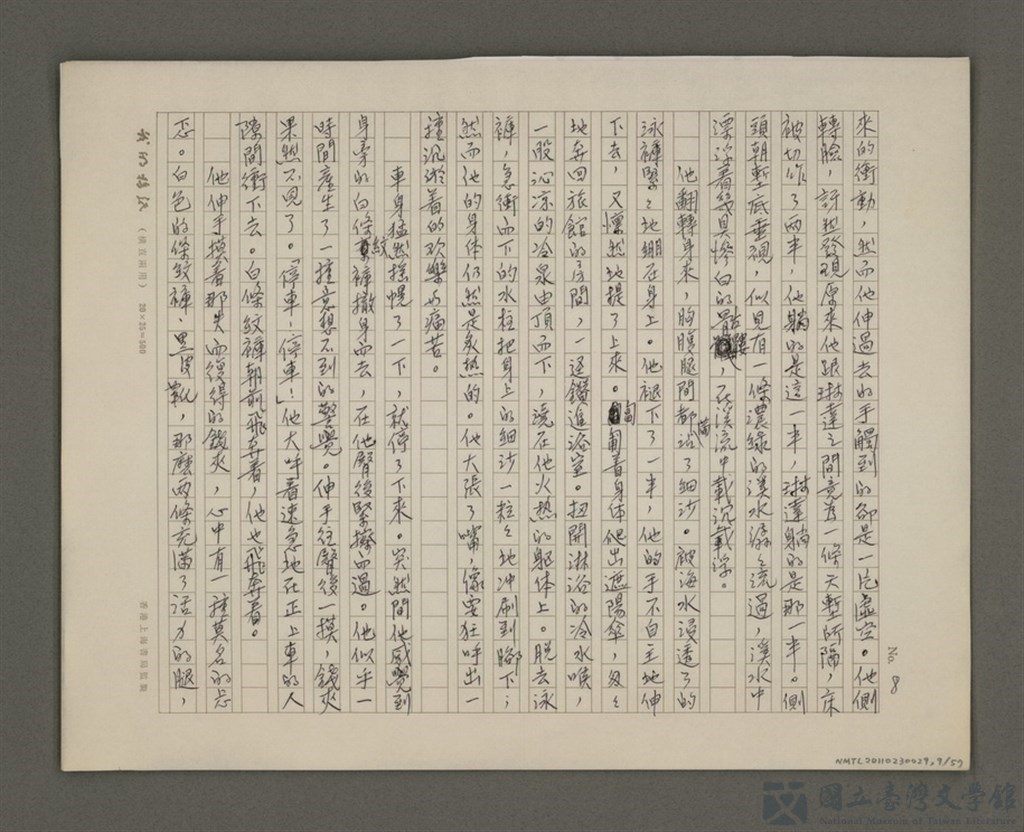 No. 8
來的衝動，然而他伸過去的手觸到的卻是一片虛空。他側
轉臉，訝然發現原來他跟琳達之間竟為一條天塹所隔，床
被切作了兩半，他躺的是這一半，琳達躺的是那一半。側
頭朝塹底垂視，似見有一條濃綠的溪水潺々流過，溪水中
漂浮著幾具慘白的骷髏，在溪流中載沉載浮。
他翻轉身來，胸腹腿間都沾滿了細沙。被海水浸透了的
泳褲緊々地綳在身上。他褪下了一半，他的手不自主地伸
下去，又懍然地提了上來。匍匐著身体爬出遮陽傘，匆々
地奔回旅館的房間，一逕鑽進浴室。扭開淋浴的冷水喉，
一股沁凉的冷泉由頂而下，澆在他火热的躯体上。脱去泳
褲，急衝而下的水柱把身上的細沙一粒々地冲刷到腳下；
然而他的身体仍然是炙热的。他大張了嘴，像要狂呼出一
種沉澱著的欢樂与痛苦。
車身猛然搖幌了一下，就停了下來。突然間他感覺到
身旁的白條紋褲撤身而去，在他臀後緊擦而過。他似乎一
時間產生了一種意想不到的警覺。伸手往臀後一摸，錢夾
果然不見了。「停車！停車！」他大呼着速急地在正上車的人
隙間衝下去。白條紋褲朝前飛奔着，他也飛奔着。
他伸手摸着那失而復得的錢夾，心中有一種莫名的忐
忑。白色的條紋褲、黑皮靴，那麼兩條充滿了活力的腿，
（橫直兩用） 20×25=500
香港上海書局監製
NMTL20110230029,9/57
國立臺灣文學館
National Museum of Taiwan Literature